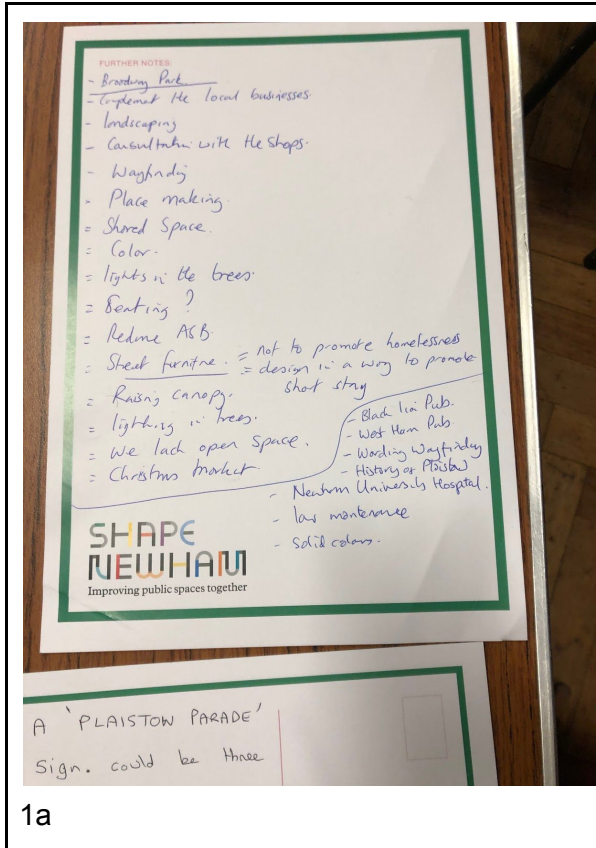 FURTHER NOTES:
- Broadway Park
- Complement the local businesses.
- landscaping
- Consultation with the shops.
- Wayfinding
- Place making.
= Shared Space.
= Color.
= lights in the trees.
= Seating ?
= Reduce ASB.
= Street furniture. = not to promote homelessness
= design in a way to promote
short stay
= Raising canopy.
= lighting in trees.
= We lack open space.
= Christmas market.
- Black Lion Pub.
- West Ham Pub.
- Wording Wayfinding
- History of Plaistow
- Newham University Hospital.
- low maintenance
- solid colors.
SHAPE
NEWHAM
Improving public spaces together
A 'PLAISTOW PARADE'
Sign. could be three
1a